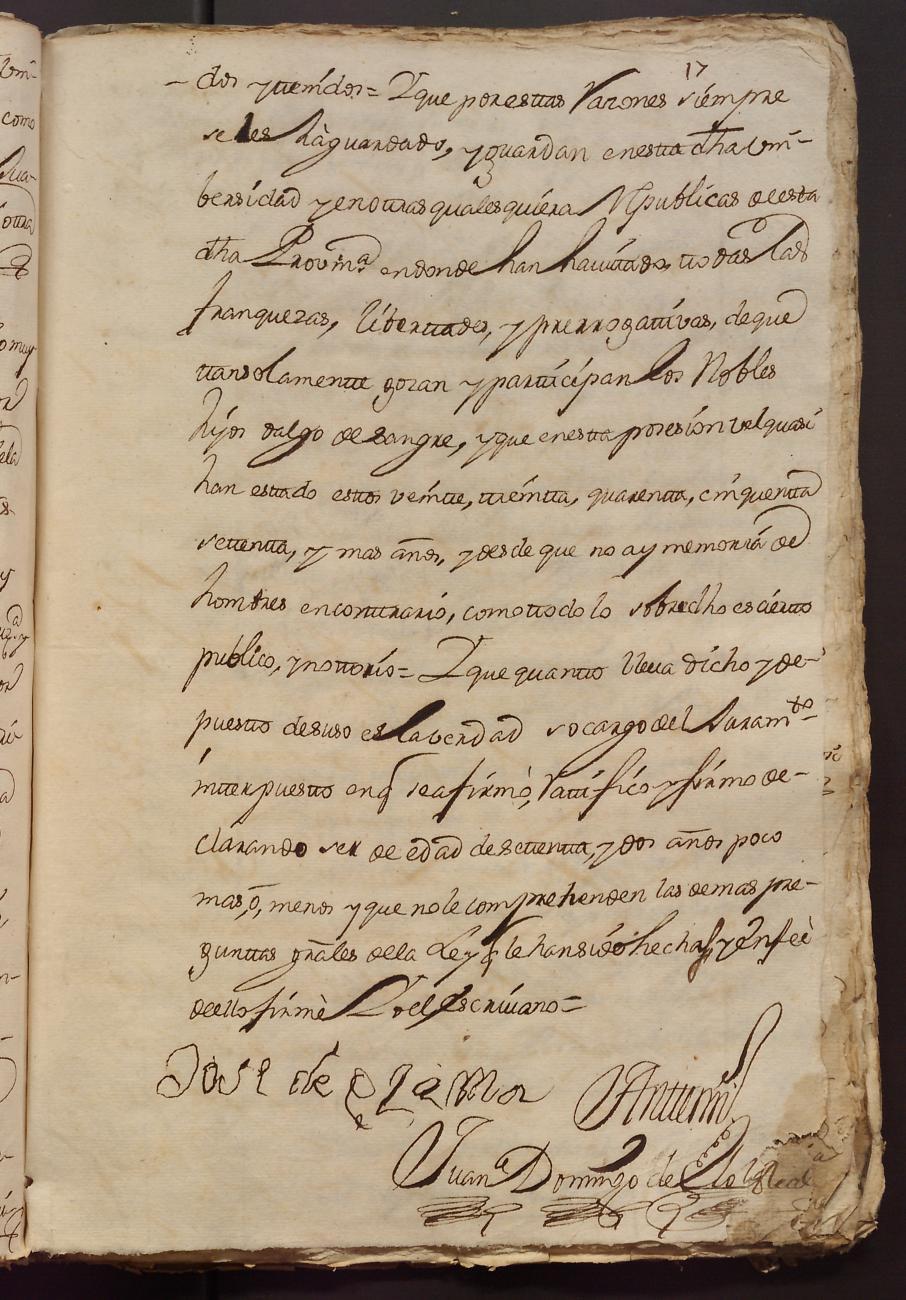 17
dos y tenidos = Y que por estas Razones siempre
se les hà guardado, y guardan en esta dha Vni-
bersidad y en otras quales quiera Republicas de esta
dha Provinª en donde han havitado, todas las
franquezas, libertades, y prerrogativas, de que
tan solamente gozan y participan los Nobles
hijos dalgo de sangre, y que en esta posesion velquasi
han estado estos veinte, treinta, quarenta, cinquenta
settenta, y mas años, y desde que no ay memoria de
hombres en contrario, como todo lo sobredho es cierto
publico, y notorio = Y que quanto lleva dicho y de-
puesto desuso es la verdad so cargo del Juramto
interpuesto en q se afirmò, ratificó y firmo de-
clarando ser de edad de setenta, y dos años poco
mas, ò, menos y que no le comprehenden las demas pre-
guntas grales de la Ley q le han sido hechas, y en feè
de ello firmè Yo el Escrivano =
Antemi
Juan Domingo de